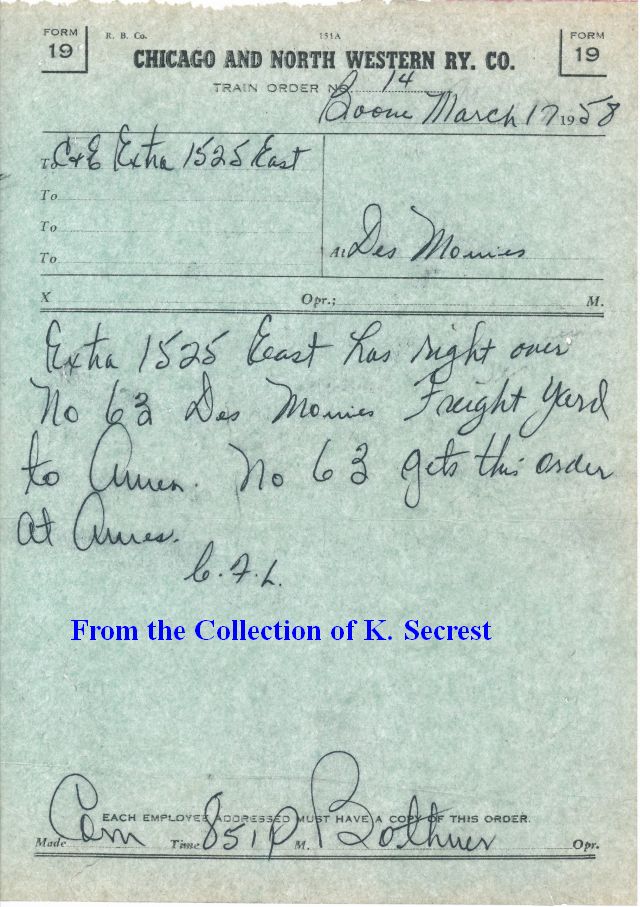 FORM 19
R. B. Co.
151A
FORM 19
CHICAGO AND NORTH WESTERN RY. CO.
TRAIN ORDER NO. 14
Boone March 17 1958
To C&E Extra 1525 East
To
To
To
At Des Moines
X Opr.; M.
Extra 1525 East has right over
No 63 Des Moines Freight Yard
to Ames. No 63 gets this order
at Ames.
C.F.L.
From the Collection of K. Secrest
EACH EMPLOYEE ADDRESSED MUST HAVE A COPY OF THIS ORDER.
Made Com Time 851 P M. Bothner Opr.